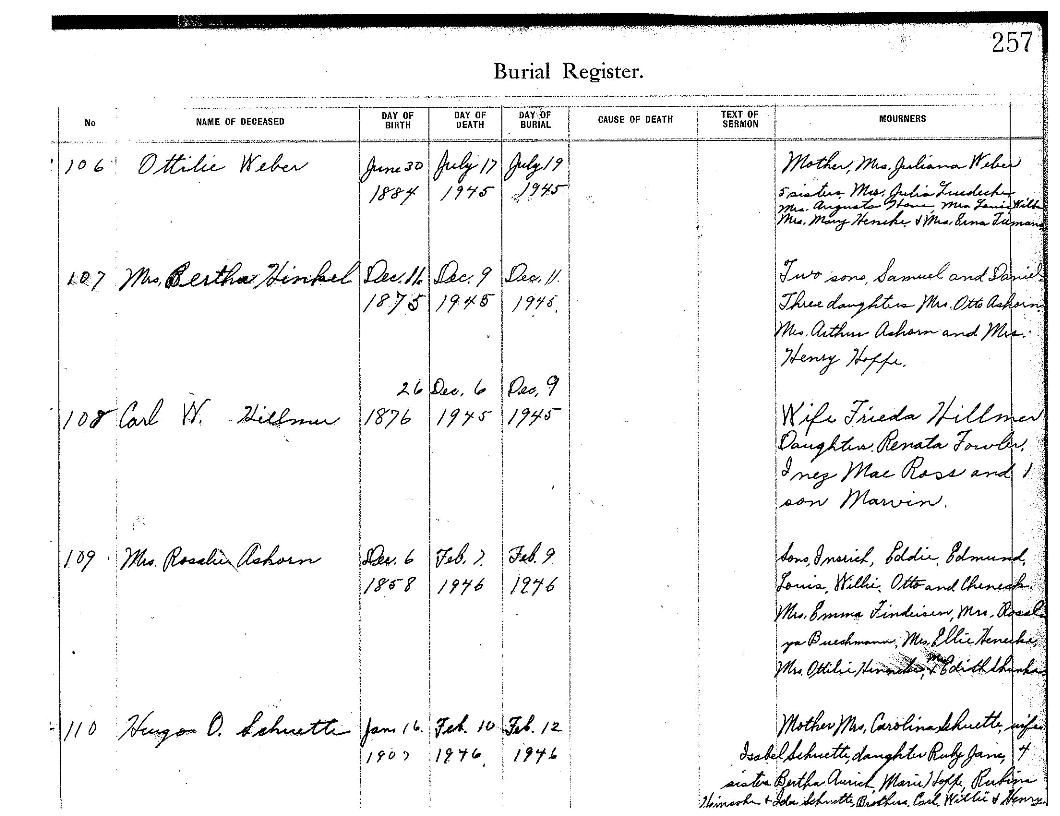 257
Burial Register.
No NAME OF DECEASED DAY OF BIRTH DAY OF DEATH DAY OF BURIAL CAUSE OF DEATH TEXT OF SERMON MOURNERS
106 Ottilie Weber June 30 July 17 July 19 Mother, Mrs. Juliana Weber
1884 1945 1945 5 sisters Mrs. Julia Luedecke
Mrs. Augusta Mrs.
Mrs. Mary Heneke & Mrs. Erna
107 Mrs. Bertha Hinkel Dec. 11. Dec. 9 Dec. 11. Two sons, Samuel and Daniel
1875 1945 1945. Three daughters Mrs. Otto Ashorn
Mrs. Arthur Ashorn and Mrs.
Henry Hoppe.
26 Dec. 6 Dec. 9
108 Carl W. Hillmer 1876 1945 1945 Wife Frieda Hillmer
Daughters. Renata Fowler,
Inez Mae Ross and 1
son Marvin.
109 Mrs. Rosalie Ashorn Dec. 6 Feb. 7. Feb. 9 Sons, Eddie, Edmund,
1858 1946 1946 Louis, Willie, Otto and
Mrs. Emma Findeisen, Mrs. Rosal
Mrs. Ellie Henecke,
Mrs. Ottilie & Edith
110 Hugo O. Schuette Jan. 16. Feb. 10 Feb. 12 Mother Mrs. Carolina Schuette, wife
1907 1946. 1946 Isabel Schuette, daughter Ruby Jane, 4
sisters Bertha Aurich, Marie Hoppe,
& Ida Schuette, Brothers, Carl, Willie & Henry.